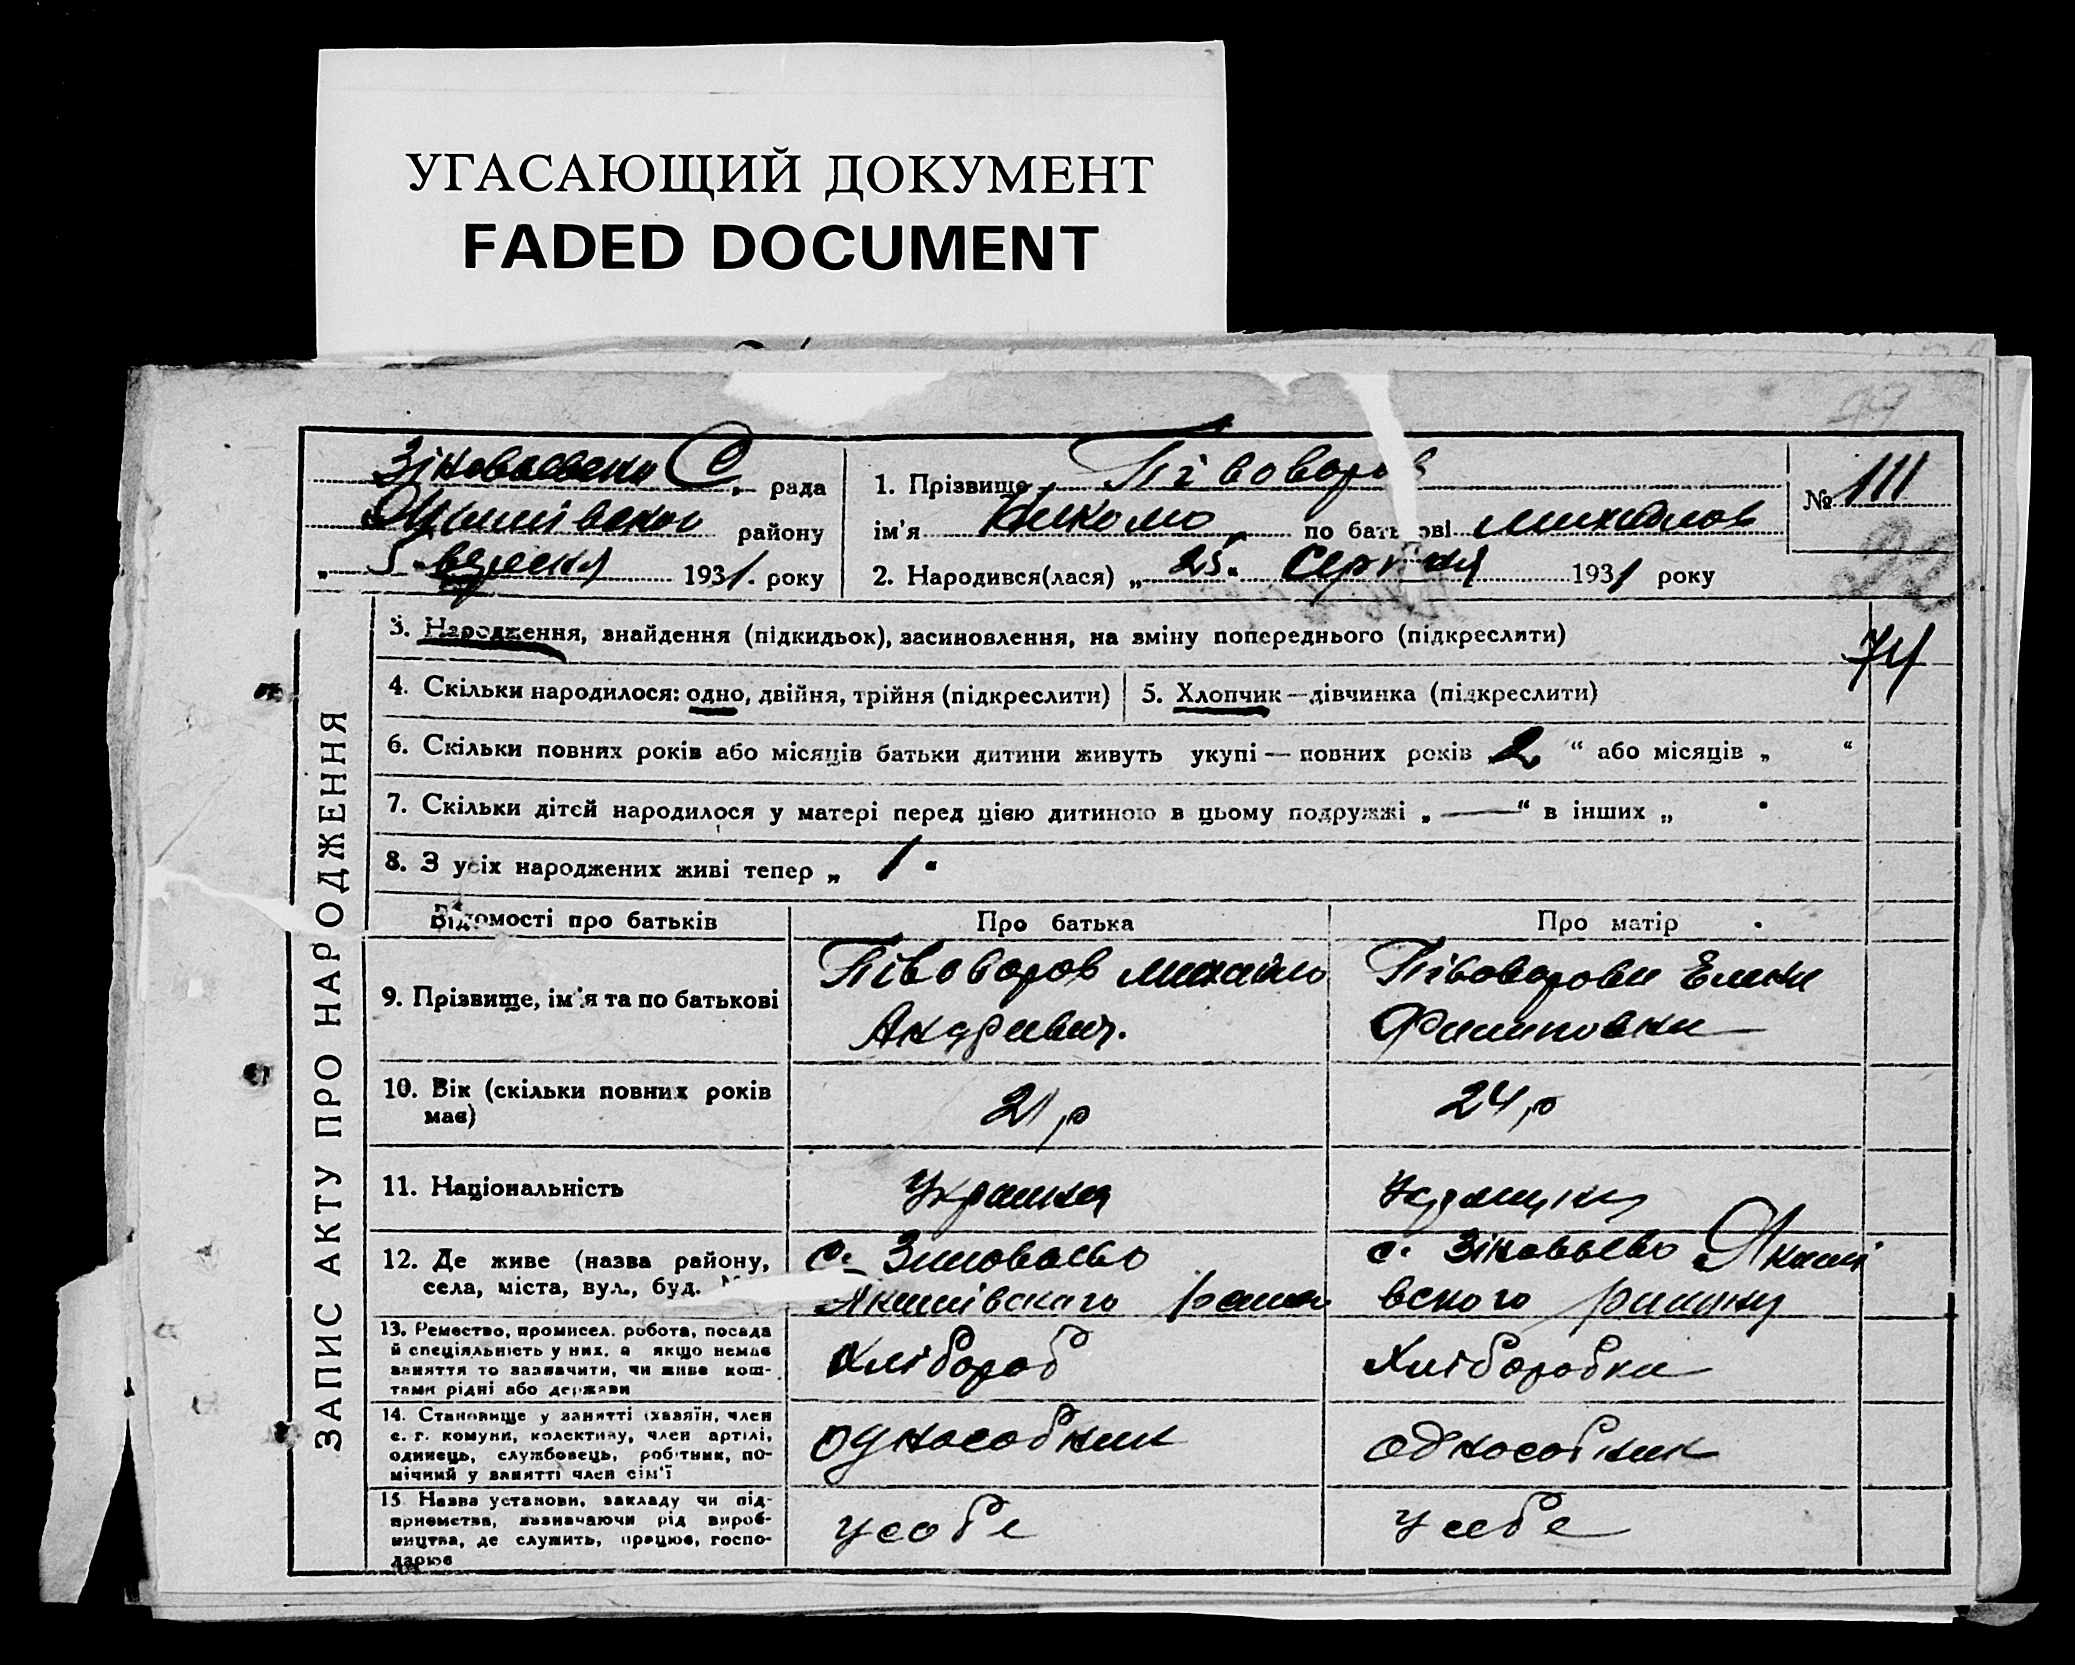 УГАСАЮЩИЙ ДОКУМЕНТ
FADED DOCUMENT
ЗАПИС АКТУ ПРО НАРОДЖЕННЯ
С. рада
району
„ 5 " вересня 1931. року
1. Прізвище Півоворов
ім'я по батькові Михайлов
2. Народився(лася) „ 25 " Серпня 1931 року
№ 111
3. Народження, знайдення (підкидьок), засиновлення, на зміну попереднього (підкреслити)
74
4. Скільки народилося: одно, двійня, трійня (підкреслити)
5. Хлопчик—дівчинка (підкреслити)
6. Скільки повних років або місяців батьки дитини живуть укупі — повних років „ 2 “ або місяців „ “
7. Скільки дітей народилося у матері перед цією дитиною в цьому подружжі „ — “ в інших „
8. З усіх народжених живі тепер „ 1 "
Відомості про батьків Про батька Про матір
9. Прізвище, ім'я та по батькові
Півоворов Михайло
Андреевич.
Півоворова Елена
Филиповна
10. Вік (скільки повних років
має)
21 р
24 р
11. Національність
12. Де живе (назва району,
села, міста, вул., буд.
с. Зиновьево
Якимівского
с. Зіновьево Якимі
вского району
13. Ремество, промисел, робота, посада
й спеціяльність у них, а якщо немає
заняття то зазначити, чи живе кош-
тами рідні або держави
Хлібороб
Хлiборобка
14. Становище у занятті (хазяїн, член
с. г. комуни, колективу, член артілі,
одинець, службовець, робітник, по-
мічний у занятті член сім'ї
одноособник
одноособник
15. Назва установи, закладу чи під-
приємства, зазначаючи рід вироб-
ництва, де служить, працює, госпо-
дарює
у собе
у себе